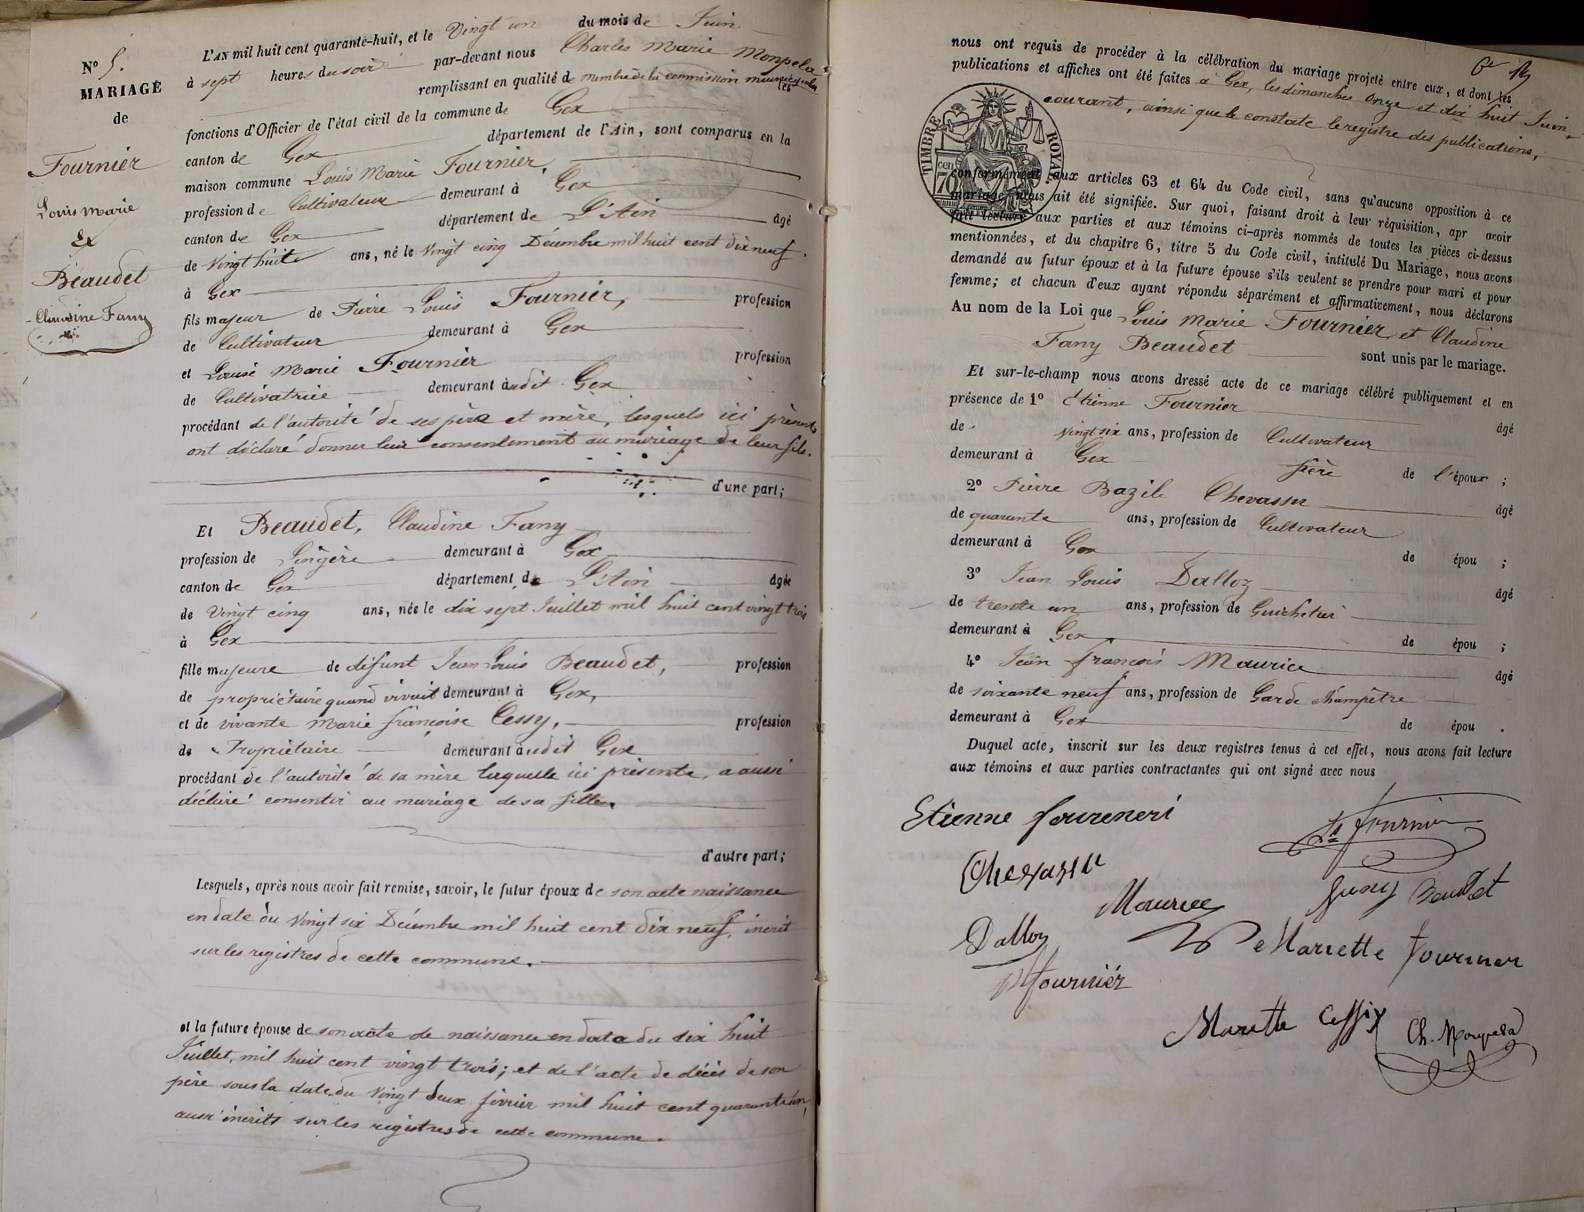 N° 5.
MARIAGE
de
Fournier
Louis Marie
Et
Beaudet
Claudine Fany
L'AN mil huit cent quarante-huit, et le Vingt un du mois de Juin
à sept heures du soir par-devant nous Charles Marie Monpela
remplissant en qualité de membre de la commission municipale les
fonctions d'Officier de l'état civil de la commune de Gex
canton de Gex département de l'Ain, sont comparus en la
maison commune Louis Marie Fournier,
profession de Cultivateur demeurant à Gex
canton de Gex département de L'Ain âgé
de Vingt huit ans, né le Vingt cinq Décembre mil huit cent dix neuf.
à Gex
fils majeur de Pierre Louis Fournier, profession
de Cultivateur demeurant à Gex
et Louise Marie Fournier profession
de Cultivatrice demeurant audit Gex
procédant de l'autorité de ses père et mère, lesquels ici présents
ont déclaré donner leur consentement au mariage de leur fils.
d'une part;
Et Beaudet, Claudine Fany
profession de Lingère demeurant à Gex
canton de Gex département de L'Ain âgée
de Vingt cinq ans, née le dix sept Juillet mil huit cent vingt trois
à Gex
fille majeure de défunt Jean Louis Beaudet, profession
de propriétaire quand vivait demeurant à Gex,
et de vivante Marie françoise Cessy, profession
de Propriétaire demeurant audit Gex
procédant de l'autorité de sa mère laquelle ici présente, a aussi
déclaré consentir au mariage de sa fille.
d'autre part;
Lesquels, après nous avoir fait remise, savoir, le futur époux de son acte naissance
en date du Vingt six Décembre mil huit cent dix neuf, inscrit
sur les registres de cette commune.
et la future épouse de son acte de naissance en date du dix huit
Juillet, mil huit cent vingt trois; et de l'acte de décès de son
père sous la date du Vingt deux février mil huit cent quarante un,
aussi inscrits sur les registres de cette commune.
nous ont requis de procéder à la célébration du mariage projeté entre eux, et dont les
publications et affiches ont été faites à Gex, les dimanches Onze et dix huit Juin,
courant, ainsi que le constate le registre des publications,
TIMBRE ROYAL
70 cen
conformément aux articles 63 et 64 du Code civil, sans qu'aucune opposition à ce
mariage nous ait été signifiée. Sur quoi, faisant droit à leur réquisition, apr avoir
fait lecture aux parties et aux témoins ci-après nommés de toutes les pièces ci-dessus
mentionnées, et du chapitre 6, titre 5 du Code civil, intitulé Du Mariage, nous avons
demandé au futur époux et à la future épouse s'ils veulent se prendre pour mari et pour
femme; et chacun d'eux ayant répondu séparément et affirmativement, nous déclarons
Au nom de la Loi que Louis Marie Fournier et Claudine
Fany Beaudet sont unis par le mariage.
Et sur-le-champ nous avons dressé acte de ce mariage célébré publiquement et en
présence de 1° Etienne Fournier âgé
de vingt six ans, profession de Cultivateur
demeurant à Gex frère de l'époux ;
2° Pierre Bazile Chevassu âgé
de quarante ans, profession de Cultivateur
demeurant à Gex de épou ;
3° Jean Louis Dalloz âgé
de trente un ans, profession de Guichetier
demeurant à Gex de épou ;
4° Jean françois Maurice âgé
de soixante neuf ans, profession de Garde Champêtre
demeurant à Gex de épou .
Duquel acte, inscrit sur les deux registres tenus à cet effet, nous avons fait lecture
aux témoins et aux parties contractantes qui ont signé avec nous
Etienne foureneri
Ls fournier
Chevassu
Maurice
fany Beaudet
Dalloz
Mariette fournier
fournier
Marette Cessy
Ch. Monpela